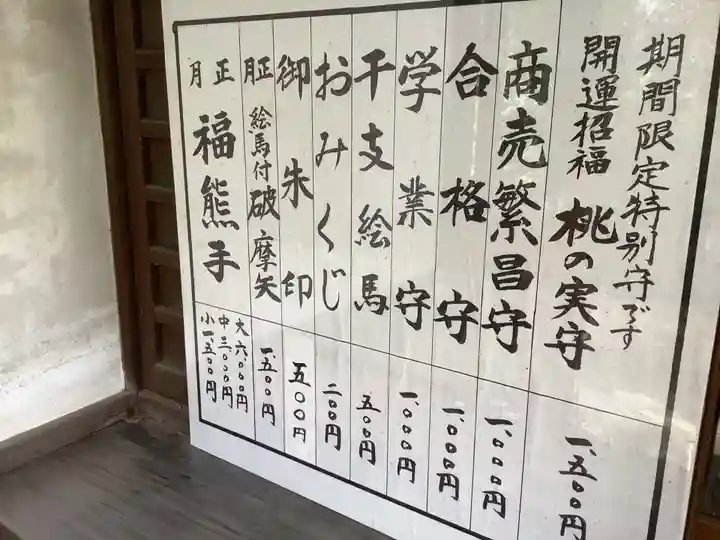 期間限定特別守です
開運招福
桃の実守
一、五〇〇円
商売繁昌守
一、〇〇〇円
合格守
一、〇〇〇円
学業守
一、〇〇〇円
干支絵馬
五〇〇円
おみくじ
二〇〇円
御朱印
五〇〇円
正月
絵馬付破摩矢
一、五〇〇円
正月
福熊手
大六〇〇〇円
中三〇〇〇円
小一、五〇〇円